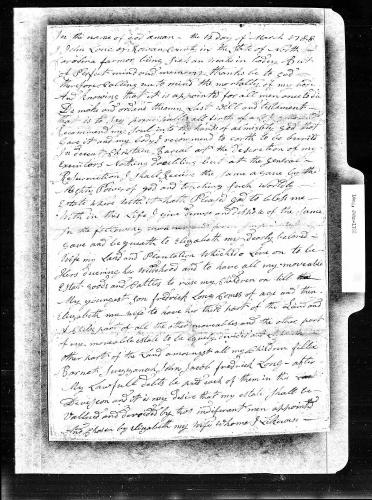 In the name of god aman - the 12 day of March 1788
I John Long of Rowan County in the State of North
Carolina farmer being sick and weak in body But
of Perfect mind and memory thanks be to god
therefore Calling unto mind the mortality of my body
and Knowing that it is appointed for all men once to die
Do make and ordain this my Last Will and testament
that is to say principally and first of all I
Recommend my Soul into the hands of almighty god that
Gave it and my body I recommend to Earth to be buried
in decent Christian Burial at the discretion of my
executors Nothing doubting but at the general
Resurrection I shall receive the same again by the
Mighty Power of god and touching such worldly
Estate where with it hath Pleased god to bless me
With in this Life I give demise and dispose of the same
in the following manner and form
gave and bequeath to Elizabeth my dearly beloved
Wife my Land and Plantation which I Live on to be
Hers during her widowhood and to have all my moveable
Estet goods and Cattle to raise my Children on till
My youngest son fredrick Long Comes of age and then
Elizabeth my wife to have her third part of the Land and
A Child part of all the other moveables and the other part
of my moveable Estate to be equally divided and
other parts of the Land amongst all my Children
Barnat, John Jacob fredrick Long - after
My Lawfull debts be paid each of them in this
Devision and it is my desire that my estate shall be
Valued and devided by two indifferent men appointed
and chosen by elizabeth my wife whome I Likewise